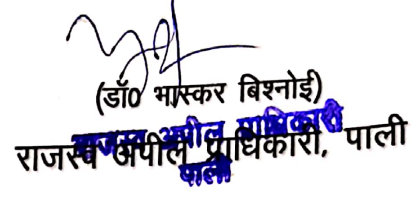 (डॉ0 भास्कर बिश्नोई)
राजस्व अपील प्राधिकारी
राजस्व अपील प्राधिकारी, पाली
पाली